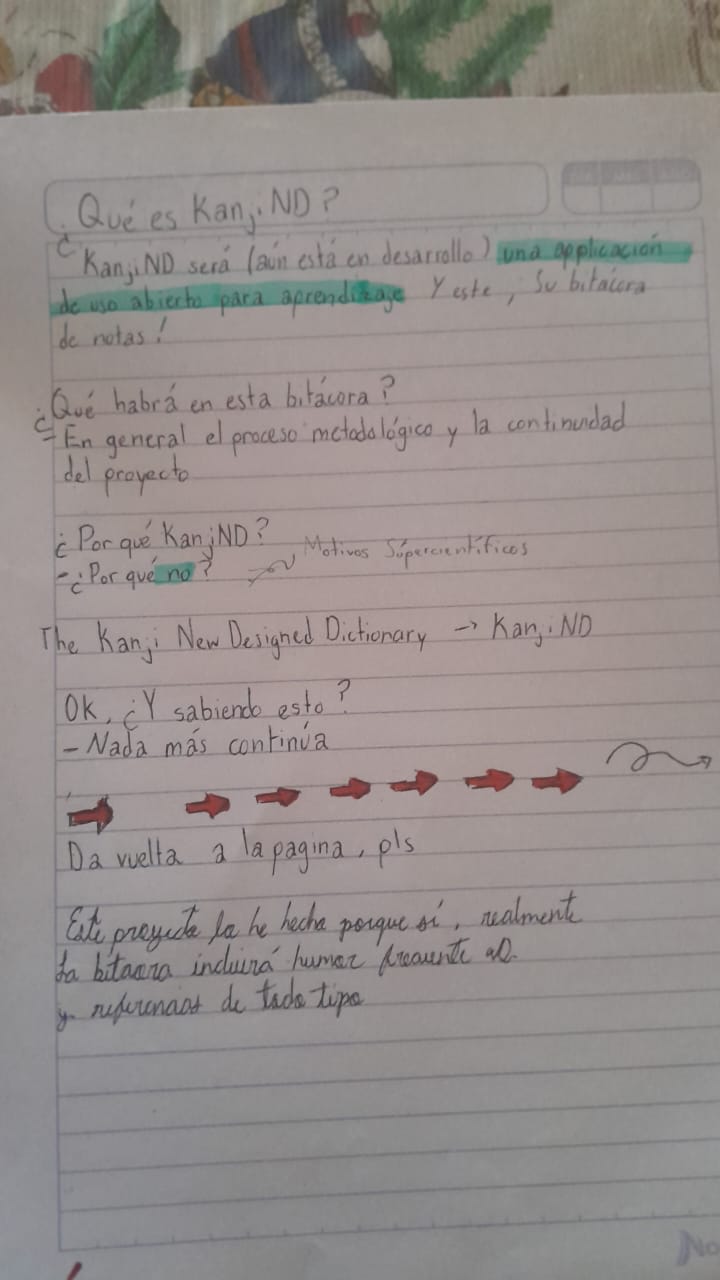 ¿Qué es KanjiND?
KanjiND será (aún está en desarrollo) una applicación
de uso abierto para aprendizaje Y este, Su bitácora
de notas!
¿Qué habrá en esta bitácora?
- En general el proceso metodológico y la continuidad
del proyecto
¿Por qué KanjND?
- ¿Por qué no? Motivos Súpercientíficos
The Kanji New Designed Dictionary → KanjiND
Ok, ¿Y sabiendo esto?
- Nada más continúa
Da vuelta a la pagina, pls
Este proyecto lo he hecho porque sí, realmente
la bitacora incluirá humor frecuente
y referencias de todo tipo
No